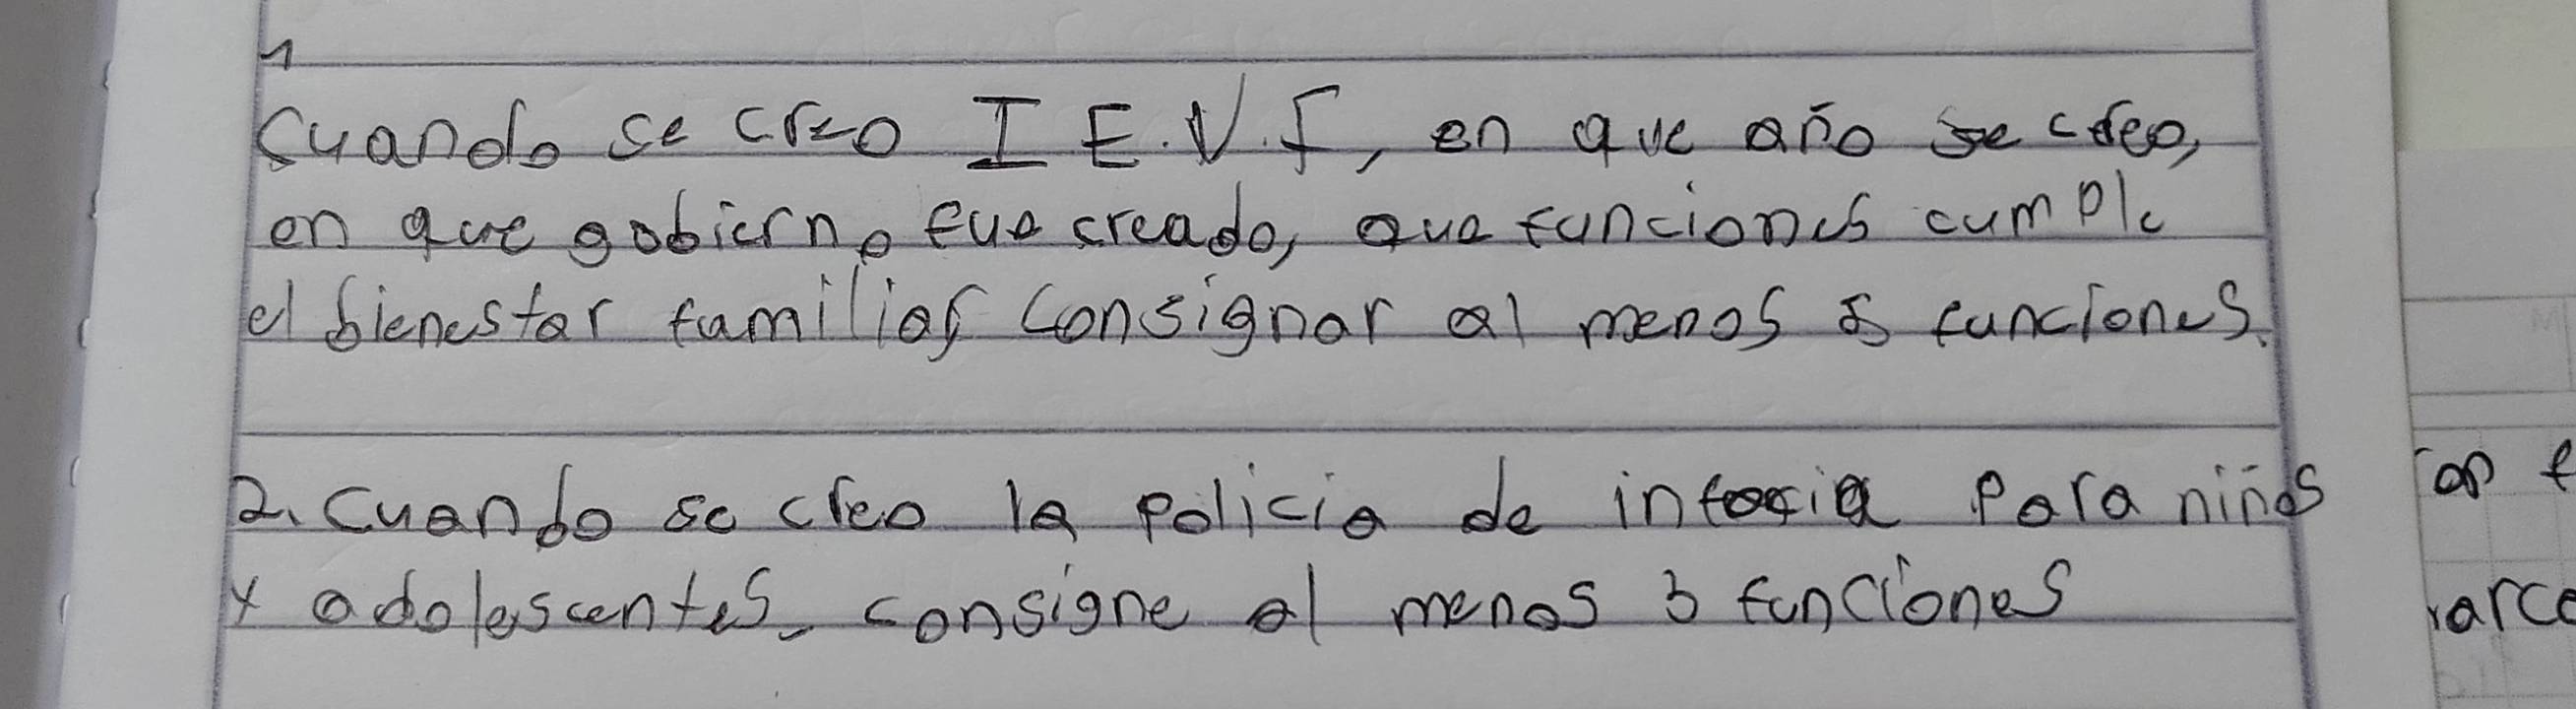 1
Cuando se creo I E.V.F, en que año se creo,
en que gobierno fue creado, que funciones cumple
el bienestar familiar consignar al menos 5 funciones.
2. Cuando se creo la policia de infancia para niños
y adolescentes. consigne al menos 3 funciones